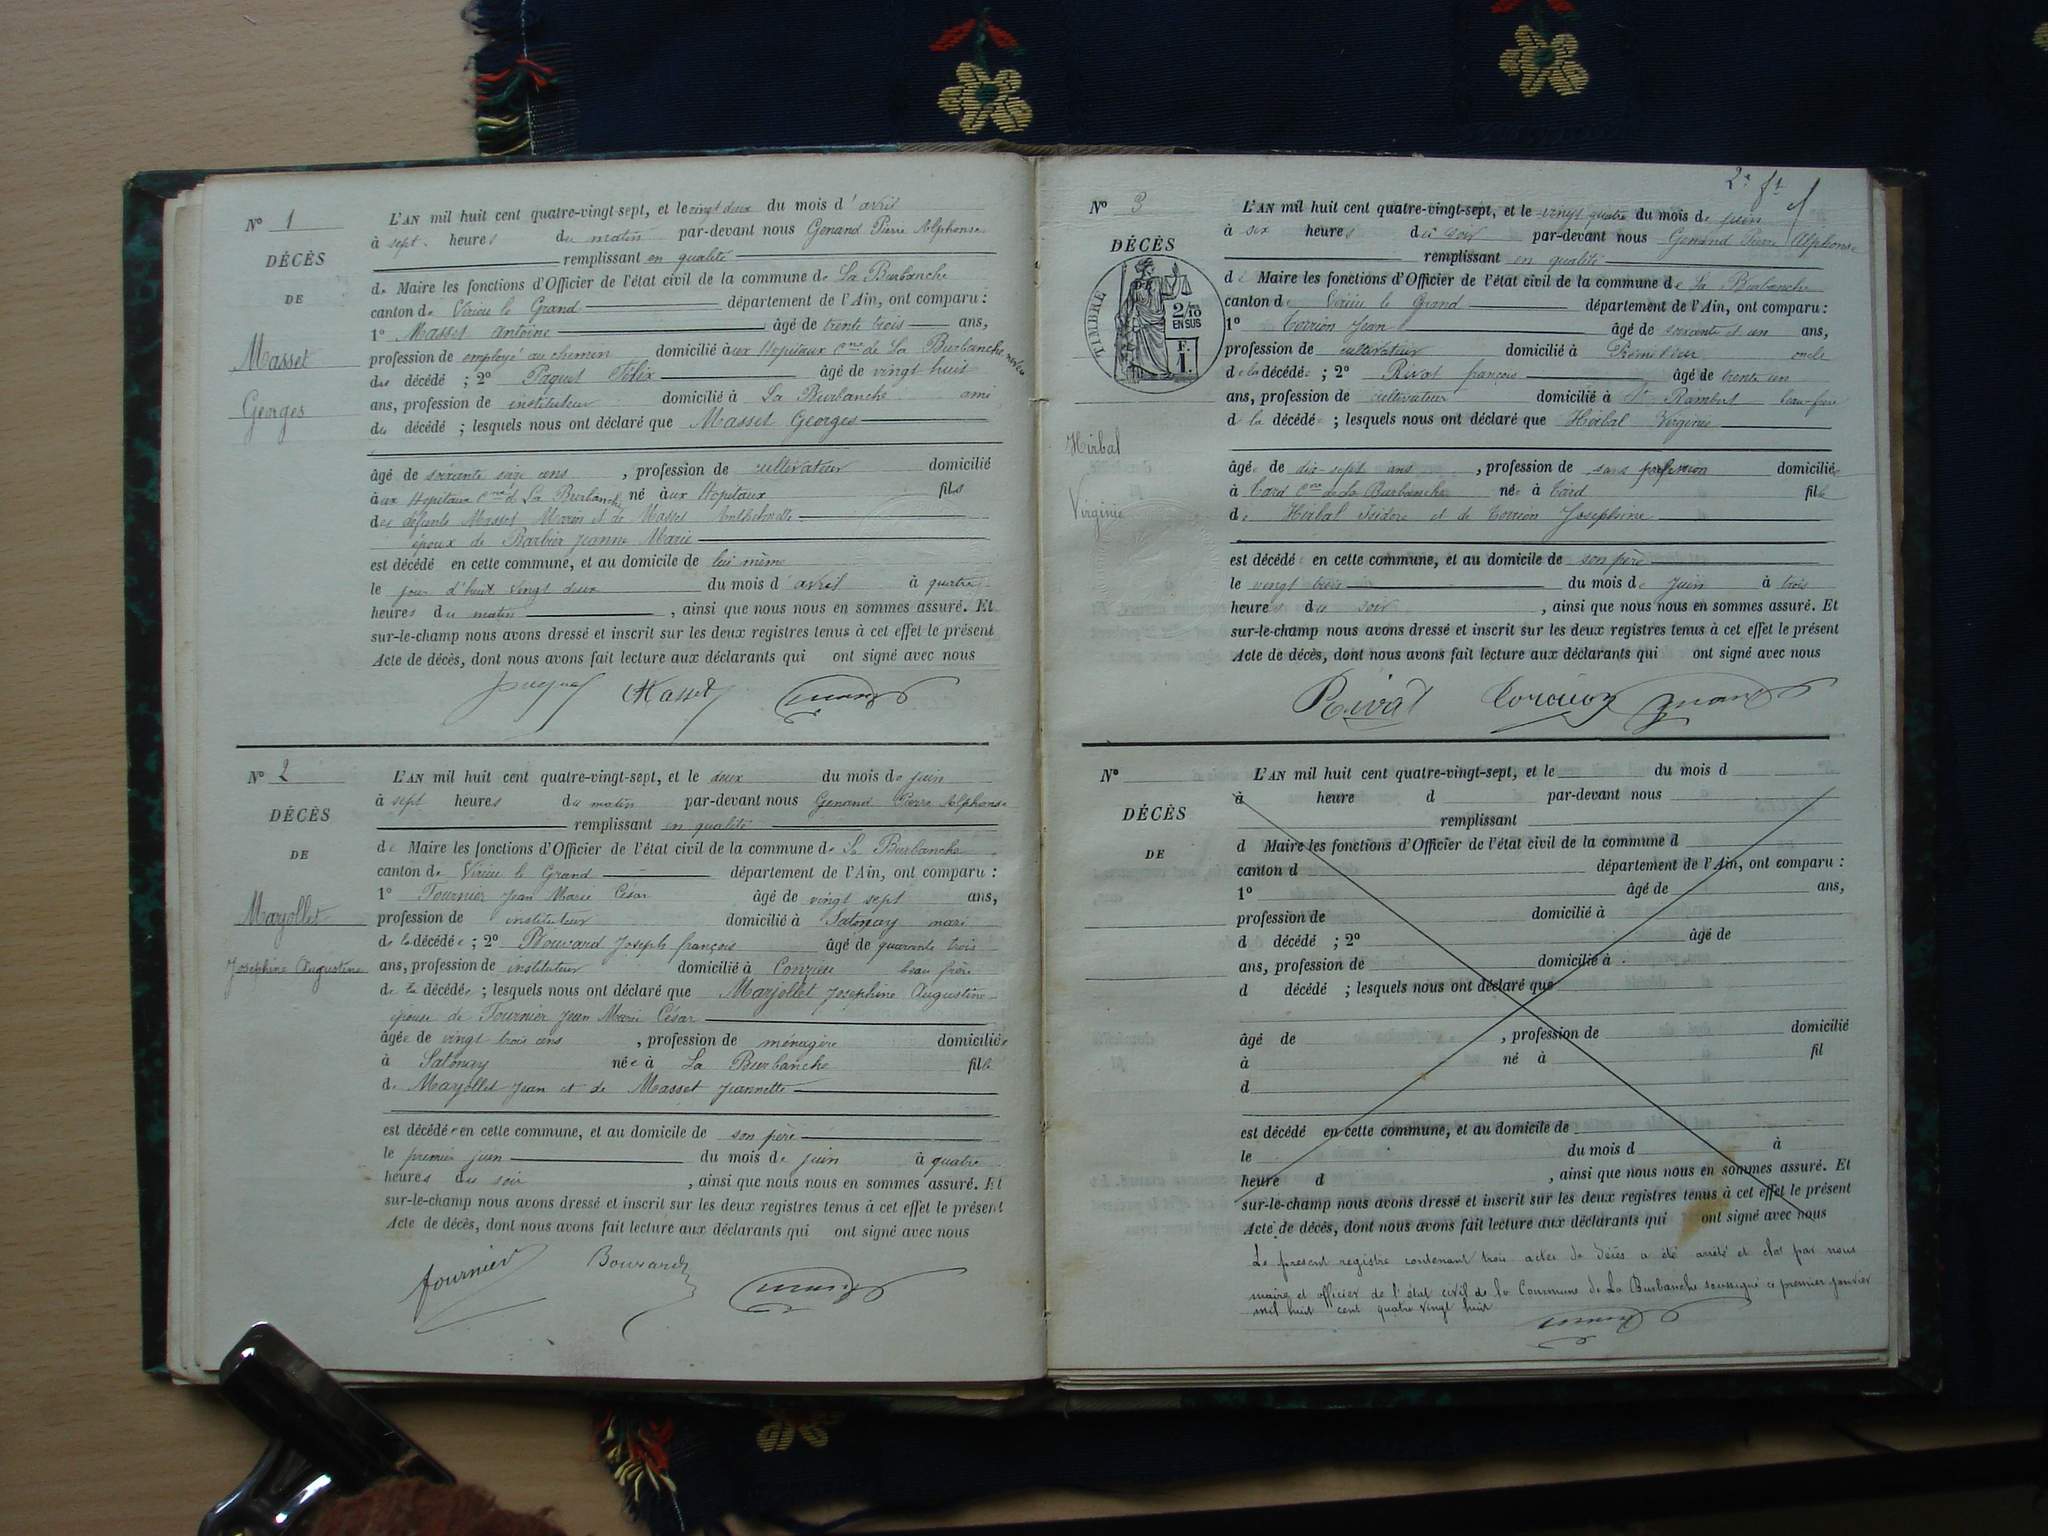 N° 1
DÉCÈS
DE
Masset
Georges
L'AN mil huit cent quatre-vingt-sept, et le vingt deux du mois d'avril
à sept heures du matin par-devant nous Genand Pierre Alphonse
remplissant en qualité
de Maire les fonctions d'Officier de l'état civil de la commune de La Burbanche
canton de Virieu le Grand département de l'Ain, ont comparu :
1° Masset Antoine âgé de trente trois ans,
profession de employé au chemin domicilié aux Hopitaux Cne de La Burbanche
du décédé ; 2° Paquet Félix âgé de vingt huit
ans, profession de instituteur domicilié à La Burbanche ami
du décédé ; lesquels nous ont déclaré que Masset Georges
âgé de soixante seize ans , profession de cultivateur domicilié
aux Hopitaux Cne de La Burbanche né aux Hopitaux fils
des défunts Masset Marin et de Masset Anthelmette
époux de Barbier Jeanne Marie
est décédé en cette commune, et au domicile de lui même
le jour d'huit vingt deux du mois d'avril à quatre
heures du matin , ainsi que nous nous en sommes assuré. Et
sur-le-champ nous avons dressé et inscrit sur les deux registres tenus à cet effet le présent
Acte de décès, dont nous avons fait lecture aux déclarants qui ont signé avec nous
Paquet Masset Genand
N° 2
DÉCÈS
DE
Marjollet
Josephine Augustine
L'AN mil huit cent quatre-vingt-sept, et le deux du mois de juin
à sept heures du matin par-devant nous Genand Pierre Alphonse
remplissant en qualité
de Maire les fonctions d'Officier de l'état civil de la commune de La Burbanche
canton de Virieu le Grand département de l'Ain, ont comparu :
1° Fournier Jean Marie César âgé de vingt sept ans,
profession de instituteur domicilié à Satonay mari
de la décédée ; 2° Bouvard Joseph françois âgé de quarante trois
ans, profession de instituteur domicilié à Conzieu beau frère
de la décédée ; lesquels nous ont déclaré que Marjollet Josephine Augustine
épouse de Fournier Jean Marie César
âgée de vingt trois ans , profession de ménagère domiciliée
à Satonay née à La Burbanche fille
de Marjollet Jean et de Masset Jeannette
est décédée en cette commune, et au domicile de son père
le premier juin du mois de juin à quatre
heures du soir , ainsi que nous nous en sommes assuré. Et
sur-le-champ nous avons dressé et inscrit sur les deux registres tenus à cet effet le présent
Acte de décès, dont nous avons fait lecture aux déclarants qui ont signé avec nous
fournier Bouvard Genand
N° 3
DÉCÈS
TIMBRE
2/10
EN SUS
F.
1.
Hirbal
Virginie
L'AN mil huit cent quatre-vingt-sept, et le vingt quatre du mois de juin
à six heures du soir par-devant nous Genand Pierre Alphonse
remplissant en qualité
de Maire les fonctions d'Officier de l'état civil de la commune de La Burbanche
canton de Virieu le Grand département de l'Ain, ont comparu :
1° Torrion Jean âgé de soixante et un ans,
profession de cultivateur domicilié à oncle
de la décédée ; 2° Rivat françois âgé de trente un
ans, profession de cultivateur domicilié à St Rambert beau-frère
de la décédée ; lesquels nous ont déclaré que Hirbal Virginie
âgée de dix-sept ans , profession de sans profession domiciliée
à Tard Cne de La Burbanche née à Tard fille
de Hirbal Isidore et de Torrion Josephine
est décédé en cette commune, et au domicile de son père
le vingt trois du mois de juin à trois
heures du soir , ainsi que nous nous en sommes assuré. Et
sur-le-champ nous avons dressé et inscrit sur les deux registres tenus à cet effet le présent
Acte de décès, dont nous avons fait lecture aux déclarants qui ont signé avec nous
Rivat Torrion Genand
N°
DÉCÈS
DE
L'AN mil huit cent quatre-vingt-sept, et le du mois d
à heure d par-devant nous
remplissant
d Maire les fonctions d'Officier de l'état civil de la commune d
canton d département de l'Ain, ont comparu :
1° âgé de ans,
profession de domicilié à
d décédé ; 2° âgé de
ans, profession de domicilié à
d décédé ; lesquels nous ont déclaré que
âgé de , profession de domicilié
à né à fil
d
est décédé en cette commune, et au domicile de
le du mois d à
heure d , ainsi que nous nous en sommes assuré. Et
sur-le-champ nous avons dressé et inscrit sur les deux registres tenus à cet effet le présent
Acte de décès, dont nous avons fait lecture aux déclarants qui ont signé avec nous
Le present registre contenant trois actes de décès a été arrêté et clos par nous
maire et officier de l'état civil de la Commune de La Burbanche soussigné ce premier janvier
mil huit cent quatre vingt huit
Genand